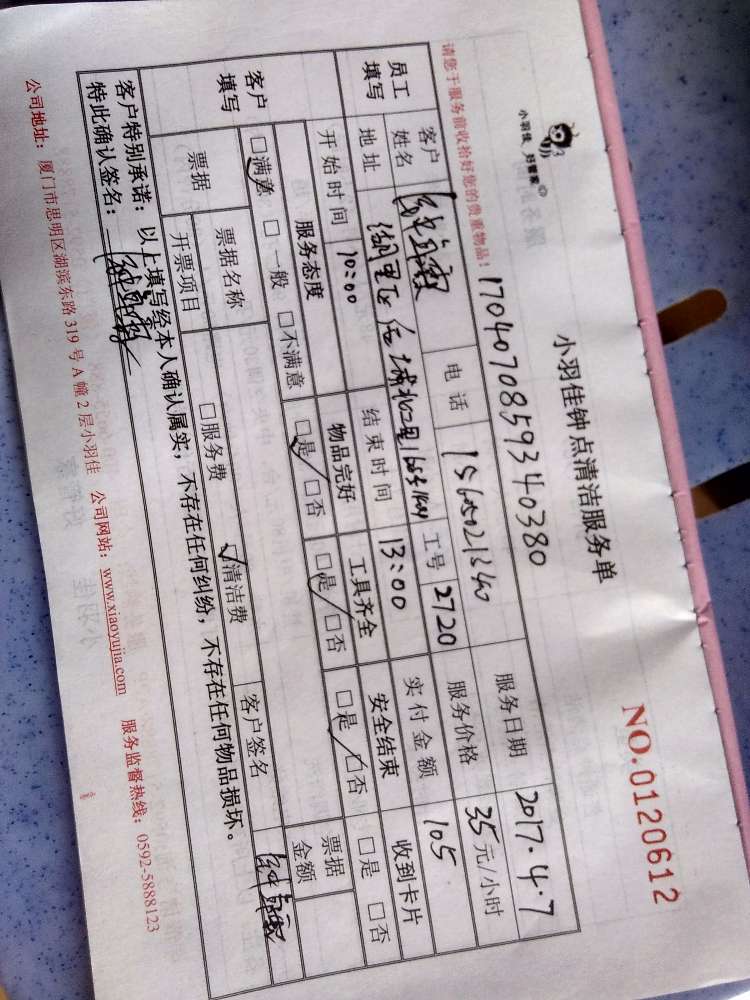 小羽佳 好管家
小羽佳钟点清洁服务单
NO.0120612
请您于服务前收拾好您的贵重物品!
1704070859340380
员工填写 客户姓名 电话 服务日期 2017.4.7
地址 工号 2720 服务价格 35元/小时
开始时间 10:00 结束时间 13:00 实付金额 105
客户填写 服务态度 物品完好 工具齐全 安全结束 收到卡片
□满意 □一般 □不满意 □是 □否 □是 □否 □是 □否 □是 □否
票据 票据名称 □服务费 清洁费 客户签名 票据金额
开票项目
客户特别承诺:以上填写经本人确认属实,不存在任何纠纷,不存在任何物品损坏。
特此确认签名:
公司地址:厦门市思明区湖滨东路319号A幢2层小羽佳 公司网站:www.xiaoyujia.com 服务监督热线:0592-5888123